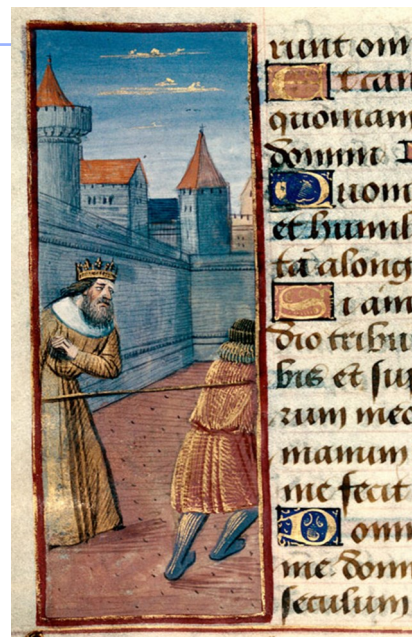 runt om
Et can
quoniam
domini
Quoni
et humil
ta along
Si am
dio tribu
bis et sup
rum meo
manum
me fecit
Domi
me domi
seculum